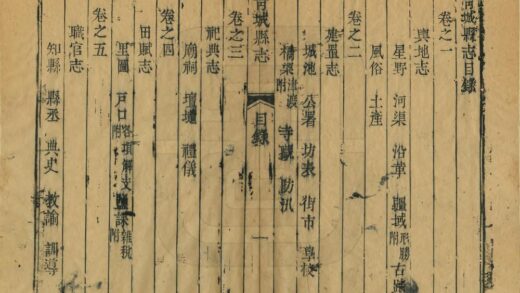 城縣志目錄
卷之一
輿地志
星野 河渠 沿革 疆域 形勝附 古蹟
風俗 土產
卷之二
建置志
城池 公署 坊表 街市 學校
橋梁 附 寺觀 防汛
城縣志
目錄
一
卷之三
祀典志
廟祠 壇壝 禮儀
卷之四
田賦志
里圖 戶口 各項解支附 鹽課 雜稅附
卷之五
職官志
知縣 縣丞 典史 教諭 訓導